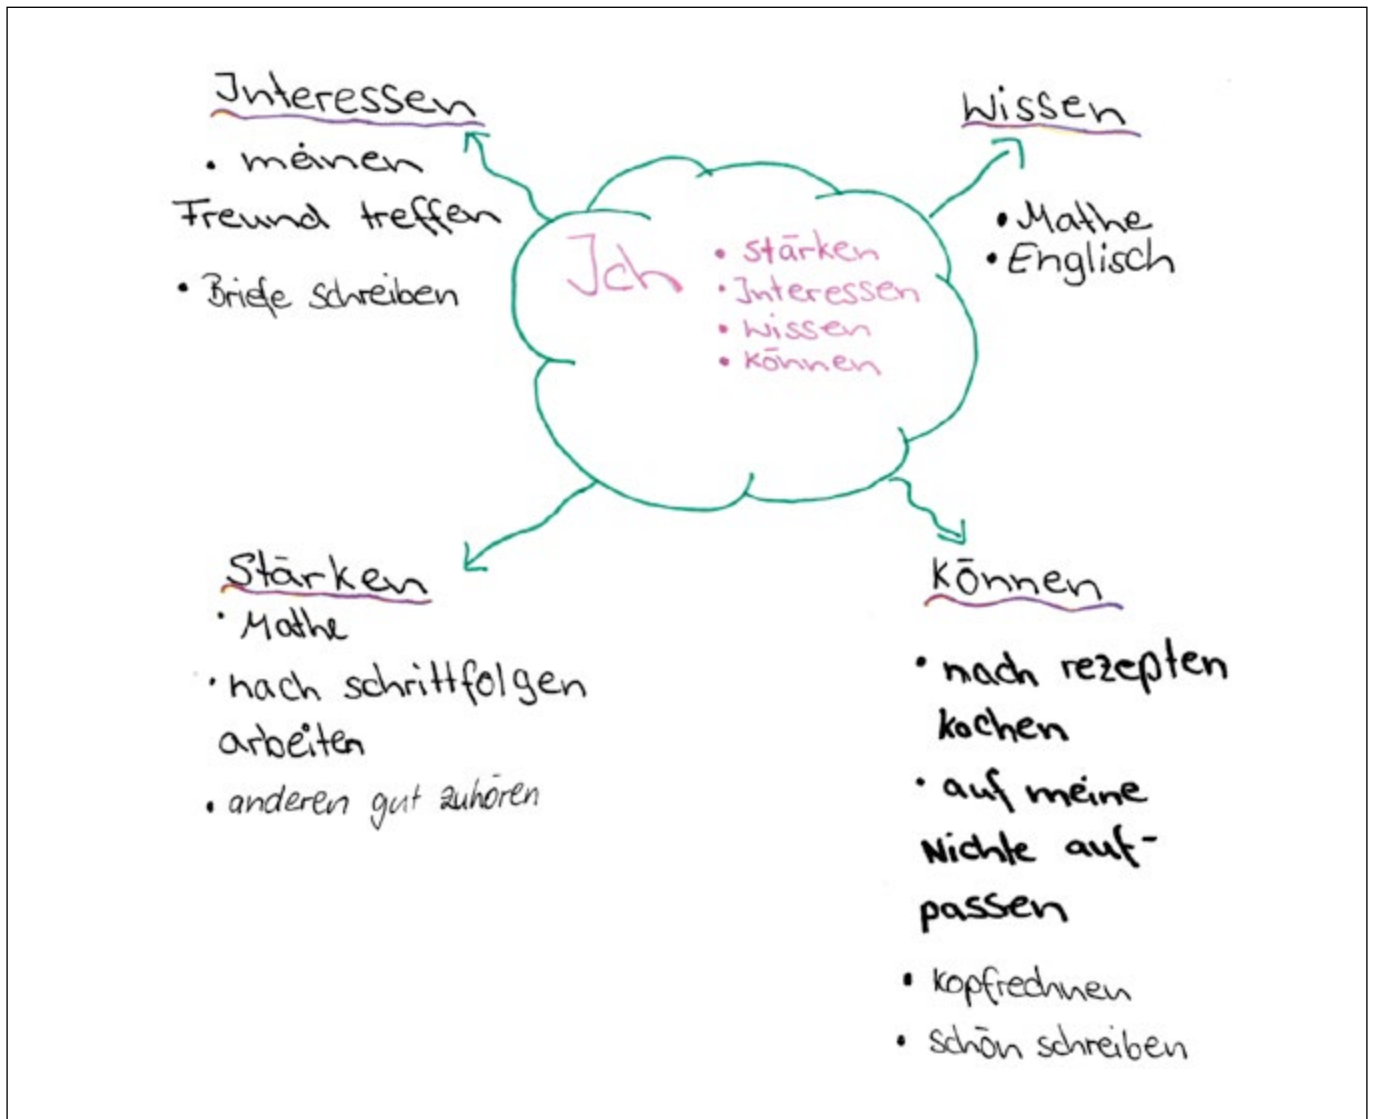 Interessen
• meinen
Freund treffen
• Briefe schreiben
Wissen
• Mathe
• Englisch
Ich
• Stärken
• Interessen
• Wissen
• Können
Stärken
• Mathe
• nach schrittfolgen
arbeiten
• anderen gut zuhören
Können
• nach rezepten
kochen
• auf meine
Nichte auf-
passen
• kopfrechnen
• schön schreiben